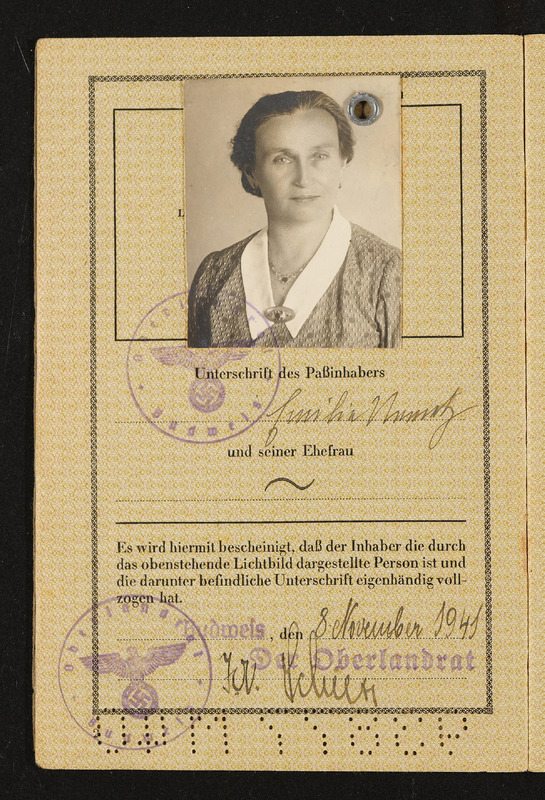 Oberlandrat
Budweis
Unterschrift des Paßinhabers
Emilie
und seiner Ehefrau
Es wird hiermit bescheinigt, daß der Inhaber die durch
das obenstehende Lichtbild dargestellte Person ist und
die darunter befindliche Unterschrift eigenhändig voll-
zogen hat.
Budweis, den 8 November 1941
Der Oberlandrat
Oberlandrat
Budweis